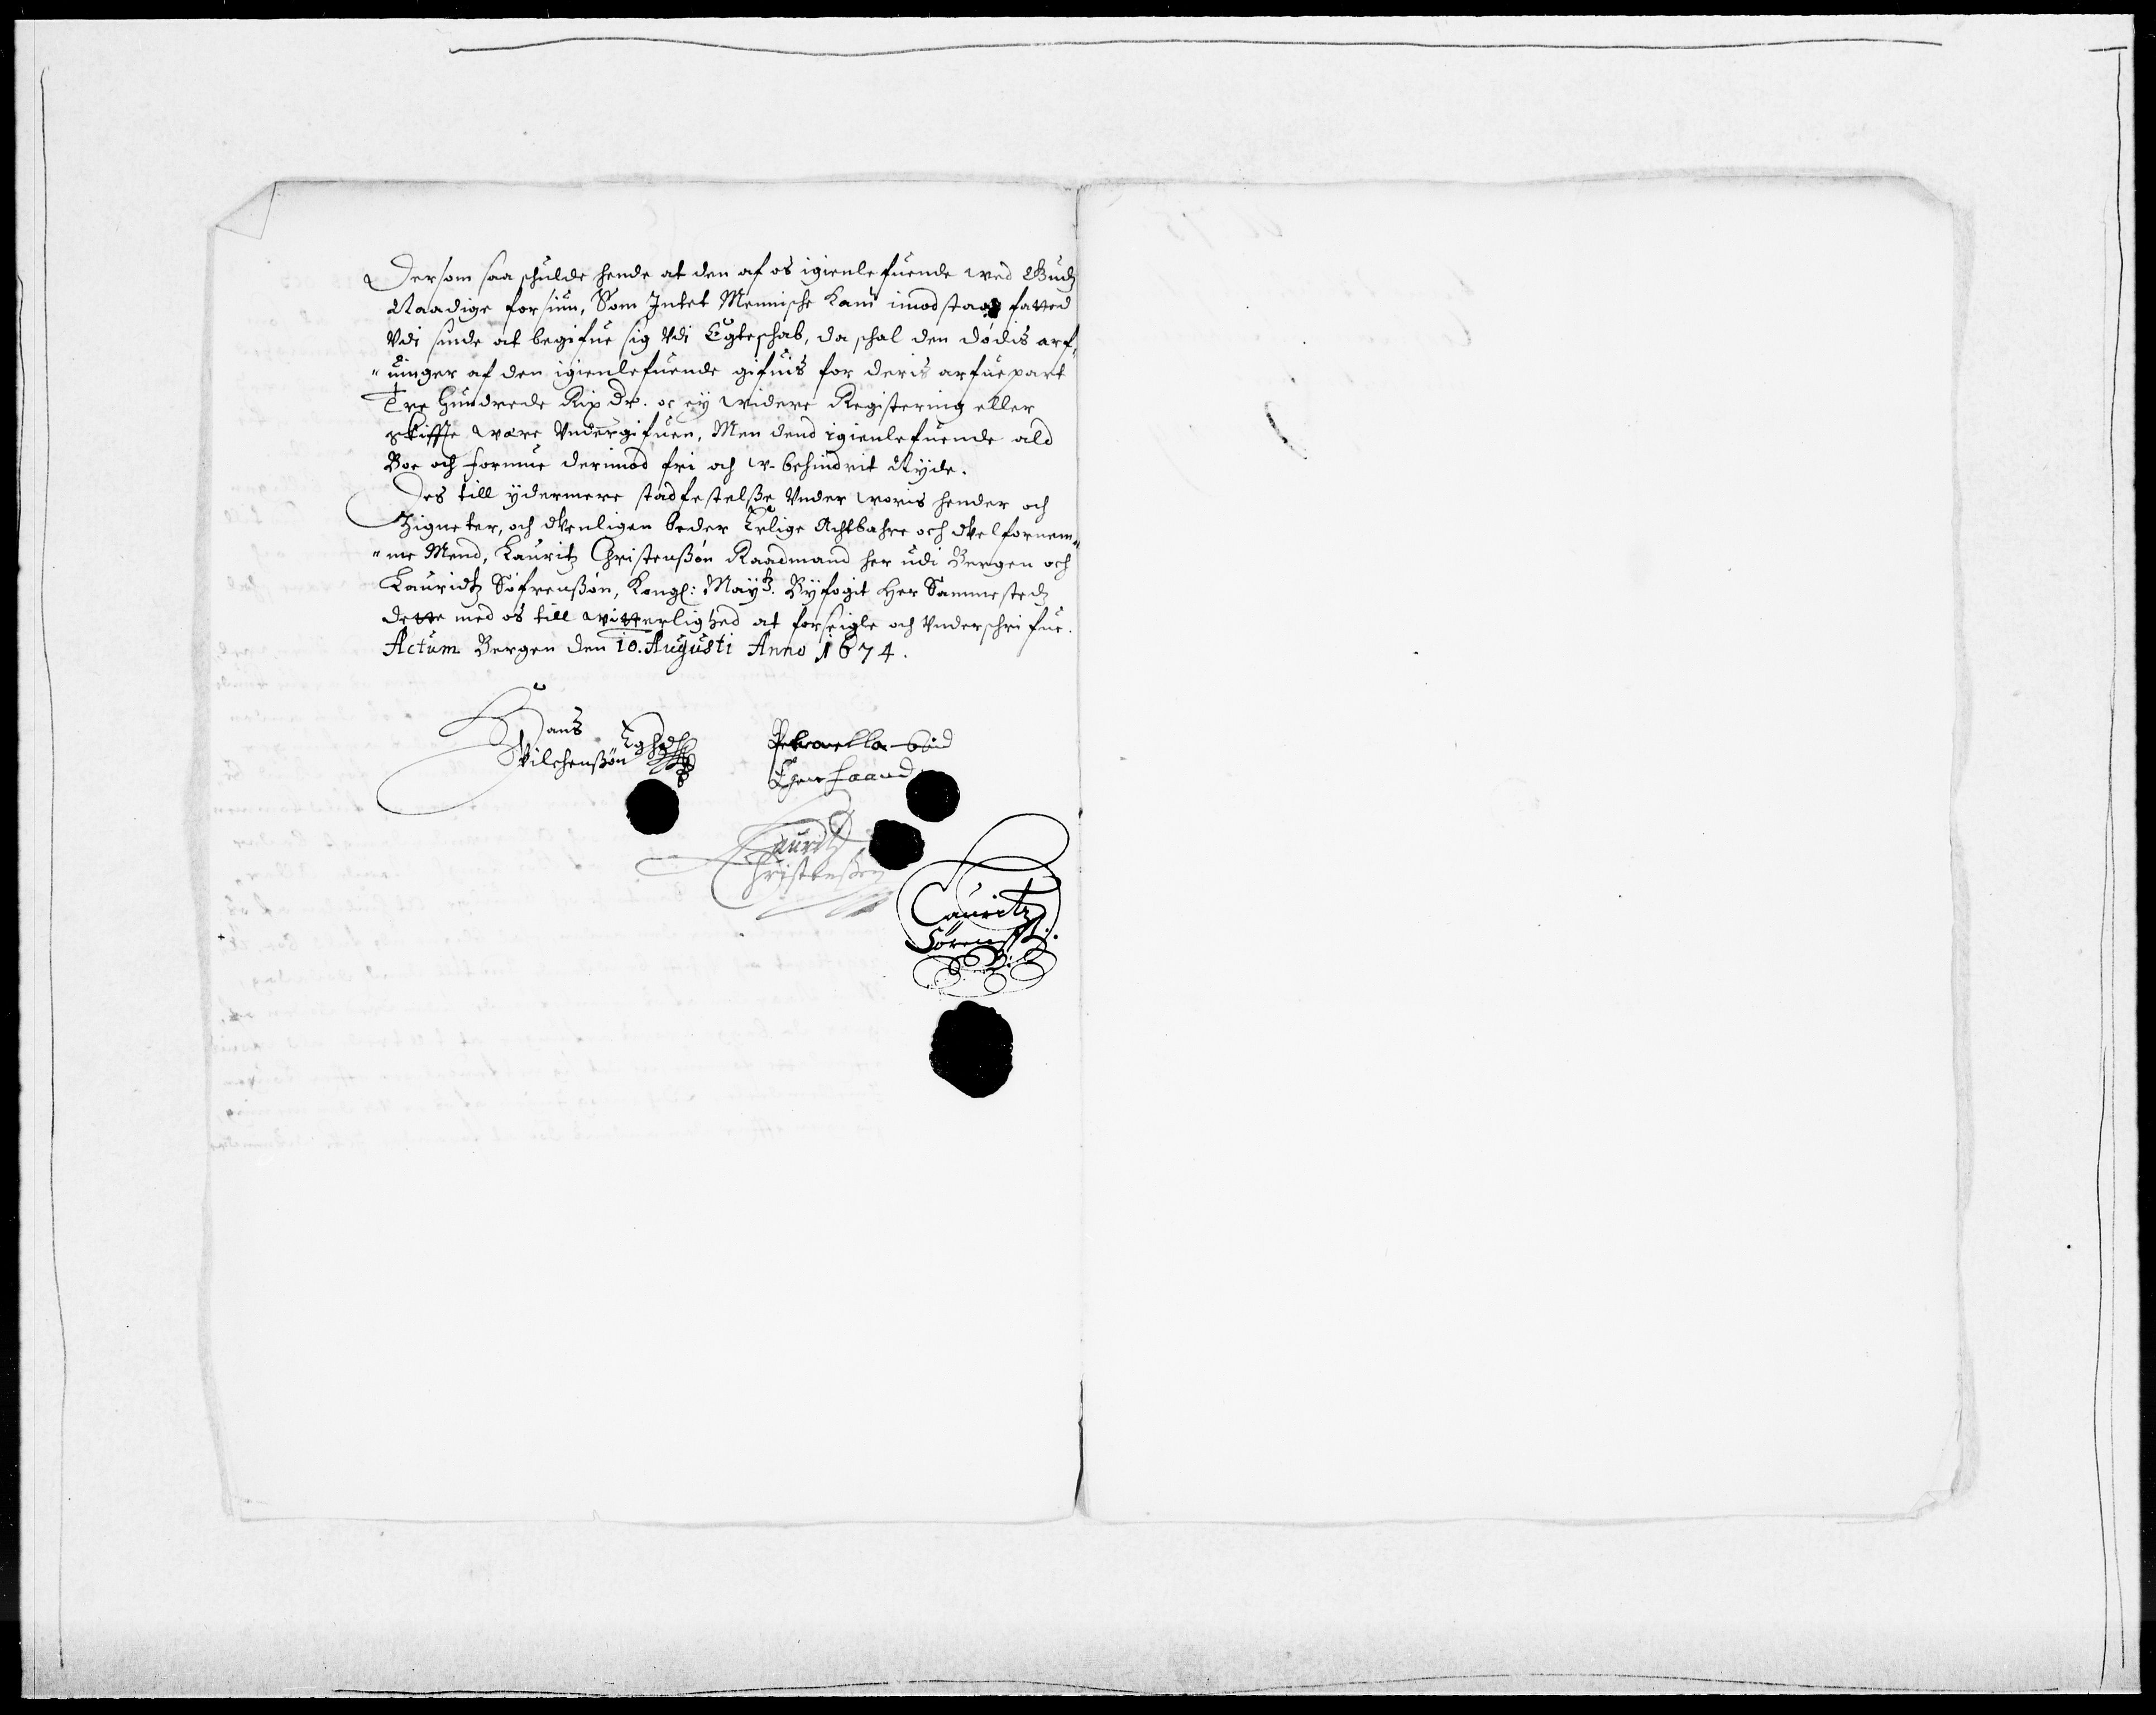 Dersom saa schulde hende at den af os igienlefuende wed Gudz
Naadige forsiun, Som Intet Mennische kand imodstaa fatted
Udi sinde at begifue sig Udi Egteschab, da schal den dødis arf,,
"uinger af den igienlefuende gifuis for deris arfuepart
Tre Hundrede Rix Dr. oc ey widere Registering eller
schiffte være Undergifuen, Men dend igienlefuende ald
Boe och formue derimod fri och u-behindrit Nyde.
Des till ydermere stadfestelsse Under woris hender och
Zigneter, och Wenligen beder Erlige Achtbahre och Welfornem,,
"me Mend, Lauritz Christenssøn Raadmand her udi Bergen och
Lauridtz Søfrenssøn, Kongl: Maytz. Byfogit Her Sammestedz
dette med os till witterlighed at forseigle och Underschrifue.
Actum Bergen den 10. Augusti Anno 1674.
Hans
Wilchenssøn Eghdh
Petronella
Egen haand
Lauridtz
Christenssen
Lauritz
Sørenss: